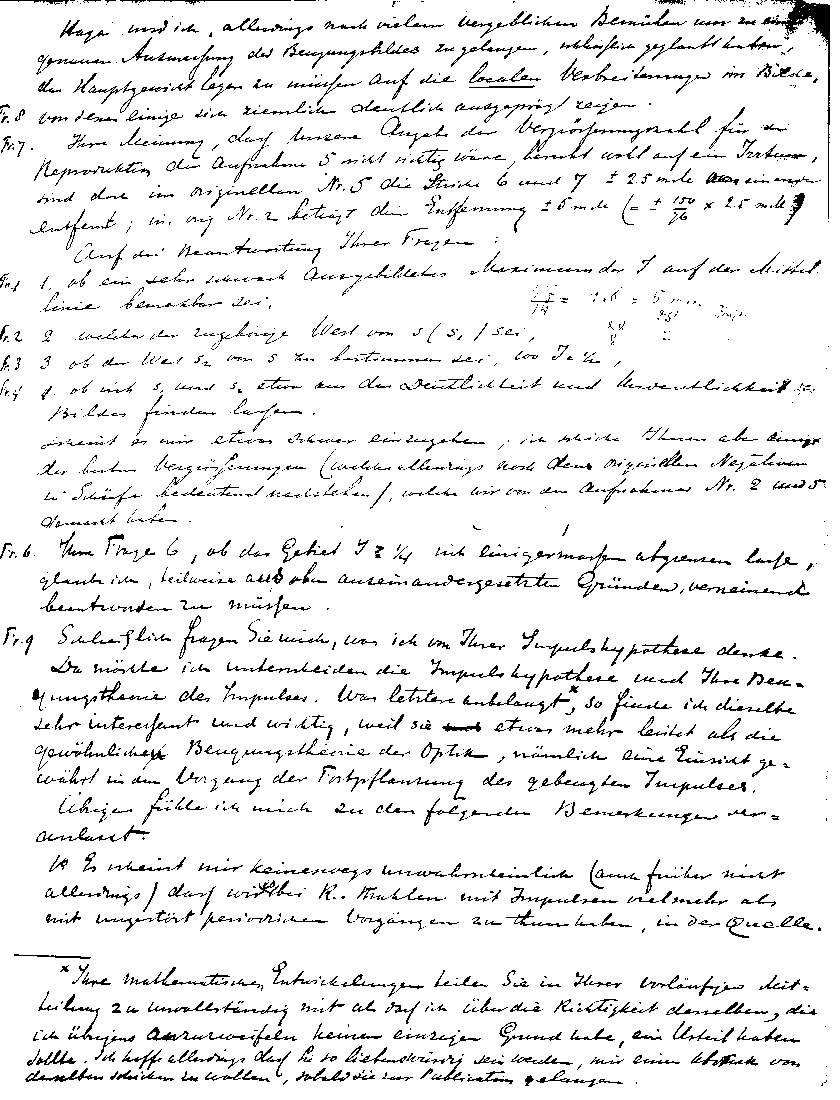 Haga und ich, allerdings nach vielem vergeblichen Bemühen um zu einer
genauen Ausmessung des Beugungsbildes zu gelangen, schließlich geglaubt haben,
das Hauptgewicht legen zu müssen auf die localen Verbreiterungen im Bilde,
Fr. 8 von denen einige sich ziemlich deutlich ausgeprägt zeigen.
Fr. 7. Ihre Meinung, dass unsere Angabe der Vergrösserungszahl für die
Reproduktion der Aufnahme 5 nicht richtig wäre, beruht wohl auf ein Irrtum,
sind doch im originellen Nr. 5 die Striche 6 und 7 ± 2.5 m.m. auseinander
entfernt; in orig Nr. 2 beträgt die Entfernung ± 5 m.m. (= ± 150/76 × 2.5 m.m.)
Auf die Beantwortung Ihrer Fragen:
Fr. 1 1. ob ein sehr schwach ausgebildetes Maximum der J auf der Mittel
linie bemerkbar sei,
Fr. 2 2 welcher der zugehörige Wert von s (s₁) sei,
Fr. 3 3 ob der Wert s₂ von s zu bestimmen sei, wo J = ¼,
Fr. 4 4. ob sich s₁ und s₂ etwa aus der Deutlichkeit und Undeutlichkeit des
Bildes finden lassen.
scheint es mir etwas schwer einzugehen; ich schicke Ihnen aber einige
der besten Vergrösserungen (welche allerdings noch den originellen Negativen
in Schärfe bedeutend nachstehen), welche wir von den Aufnahmen Nr. 2 und 5
gemacht haben.
Fr. 6. Ihre Frage 6, ob das Gebiet J ≥ ¼ sich einigermassen abgrenzen lasse,
glaube ich, teilweise aus oben auseinandergesetzten Gründen, verneinend
beantworten zu müssen.
Fr. 9 Schließlich fragen Sie mich, was ich von Ihrer Impulshypothese denke.
Da möchte ich unterscheiden die Impulshypothese und Ihre Beu-
gungstheorie des Impulses. Was letztere anbelangt*, so finde ich dieselbe
sehr interessant und wichtig, weil sie etwas mehr leistet als die
gewöhnliche Beugungstheorie der Optik, nämlich eine Einsicht ge-
währt in den Vorgang der Fortpflanzung des gebeugten Impulses.
Übrigens fühle ich mich zu den folgenden Bemerkungen ver-
anlasst.
1º Es scheint mir keineswegs unwahrscheinlich (auch früher nicht
allerdings) dass wir bei R. Strahlen mit Impulsen vielmehr als
mit ungestört periodischen Vorgängen zu thun haben, in der Quelle.
* Ihre mathematischen Entwickelungen teilen Sie in Ihrer vorläufigen Mit-
teilung zu unvollständig mit als dass ich über die Richtigkeit derselben, die
ich übrigens anzuzweifeln keinen einzigen Grund habe, ein Urteil haben
sollte. Ich hoffe allerdings dass Sie so liebenswürdig sein werden, mir einen Abdruck von
denselben schicken zu wollen, sobald sie zur Publication gelangen.